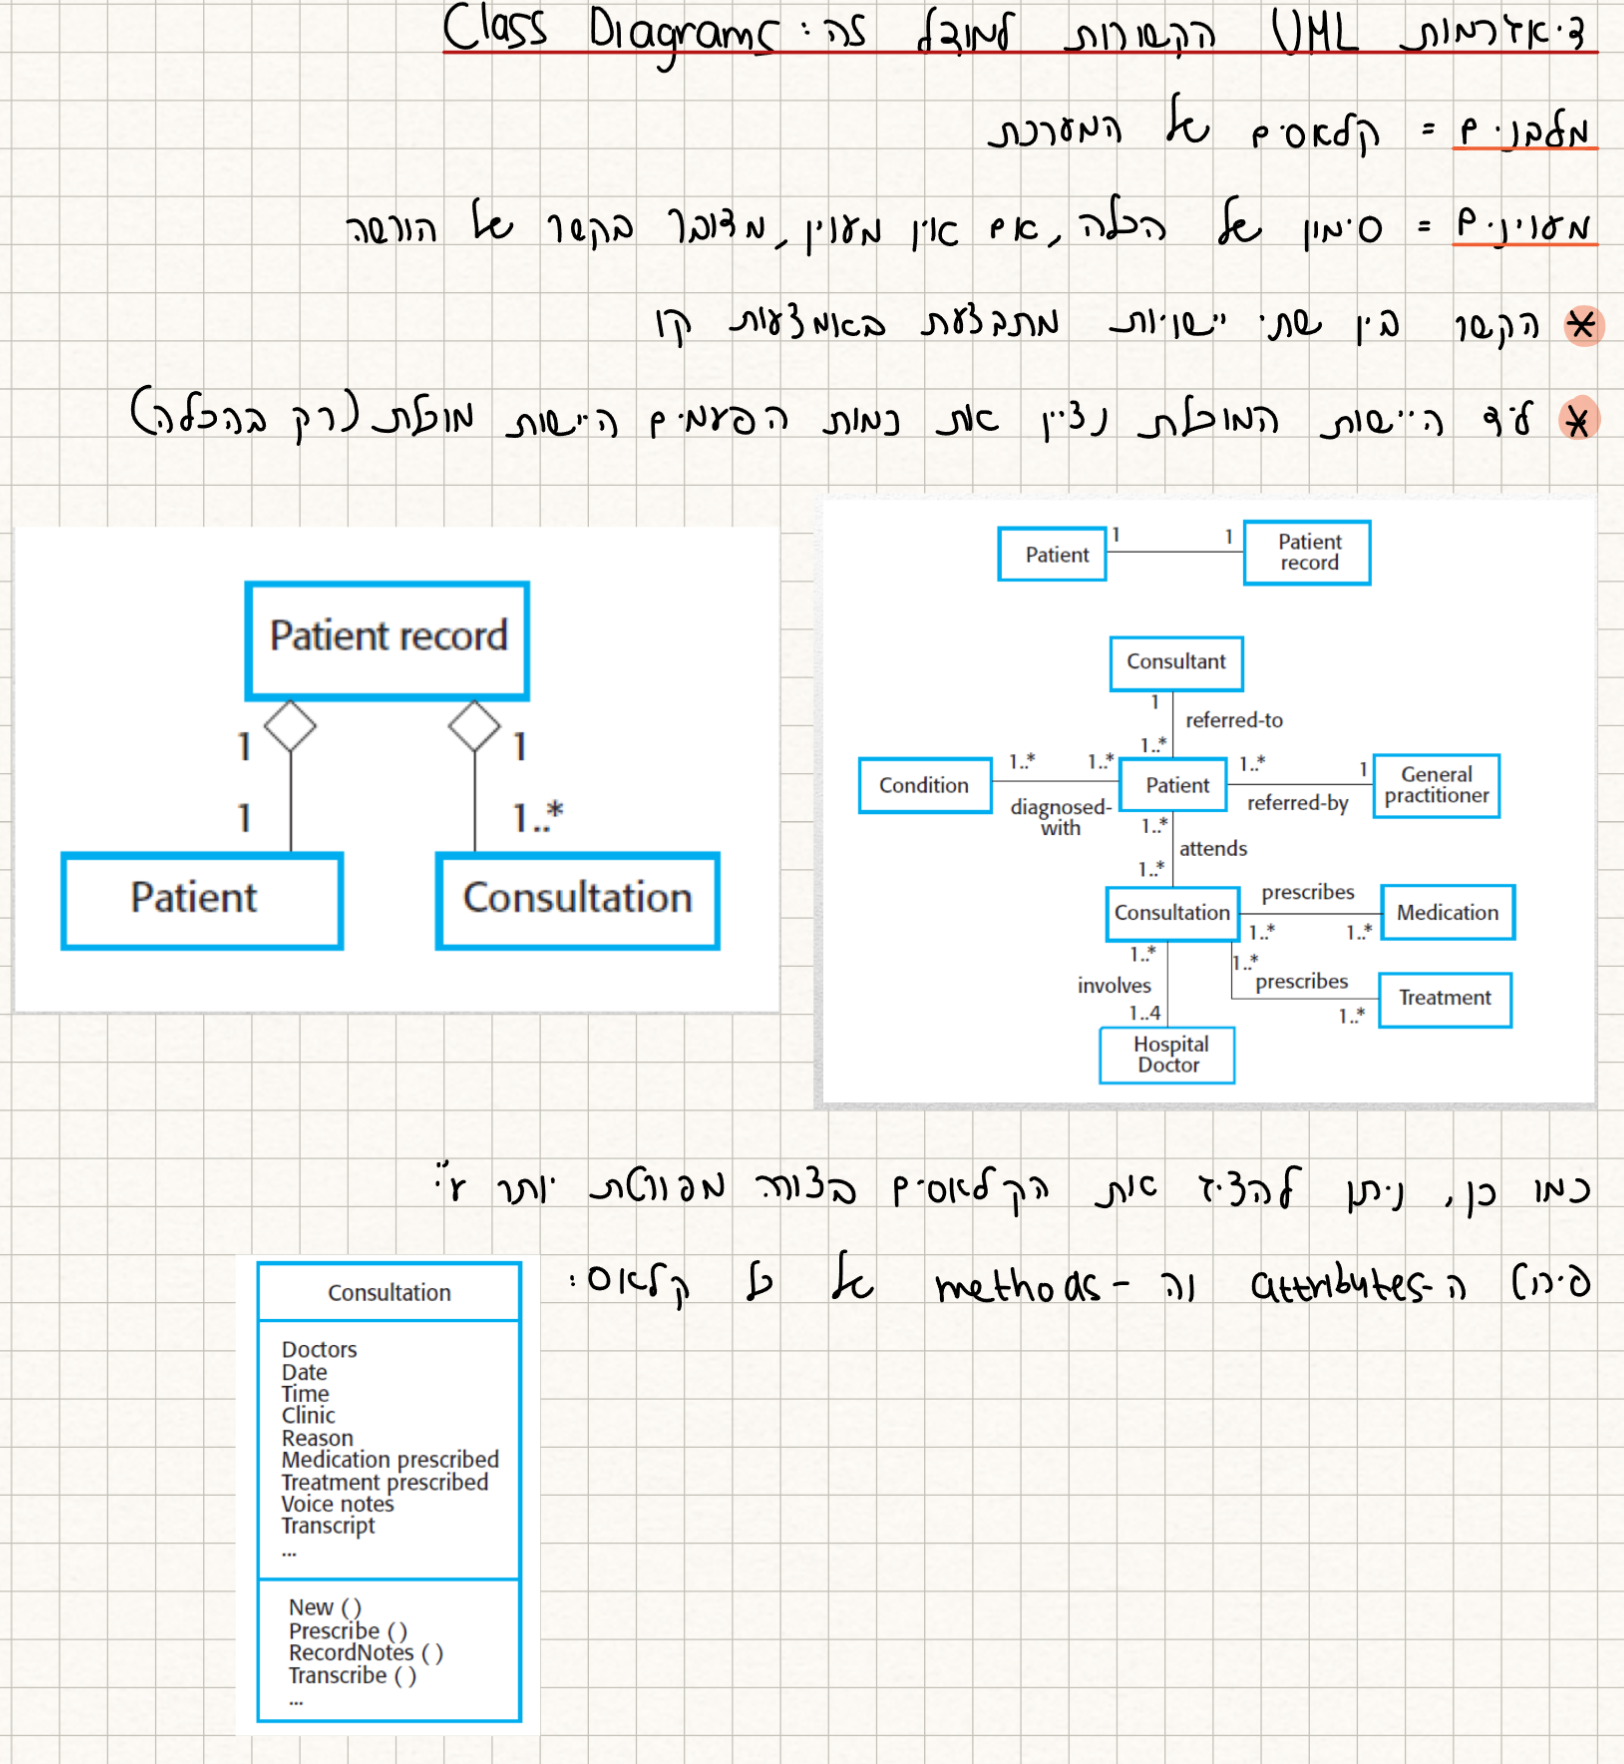 דיאגרמות UML הקשורות למודל זה: Class Diagrams
מלבנים = קלאסים של המערכת
מעוינים = סימון של הכלה, אם אין מעוין, מדובר בקשר של הורשה
* הקשר בין שתי יישויות מתבצעת באמצעות קו
* ליד היישות המוכלת נציין את כמות הפעמים היישות מוכלת (רק בהכלה)
Patient record
1
1
1
1..*
Patient
Consultation
Patient
1
1
Patient
record
Consultant
1
referred-to
1..*
Condition
1..*
1..*
diagnosed-
with
Patient
1..*
1
referred-by
General
practitioner
1..*
attends
1..*
Consultation
prescribes
1..*
1..*
Medication
1..*
prescribes
1..*
Treatment
1..*
involves
1..4
Hospital
Doctor
כמו כן, ניתן להציג את הקלאסים בצורה מפורטת יותר ע"י
פירוט ה-attributes וה-methods של כל קלאס:
Consultation
Doctors
Date
Time
Clinic
Reason
Medication prescribed
Treatment prescribed
Voice notes
Transcript
...
New ( )
Prescribe ( )
RecordNotes ( )
Transcribe ( )
...